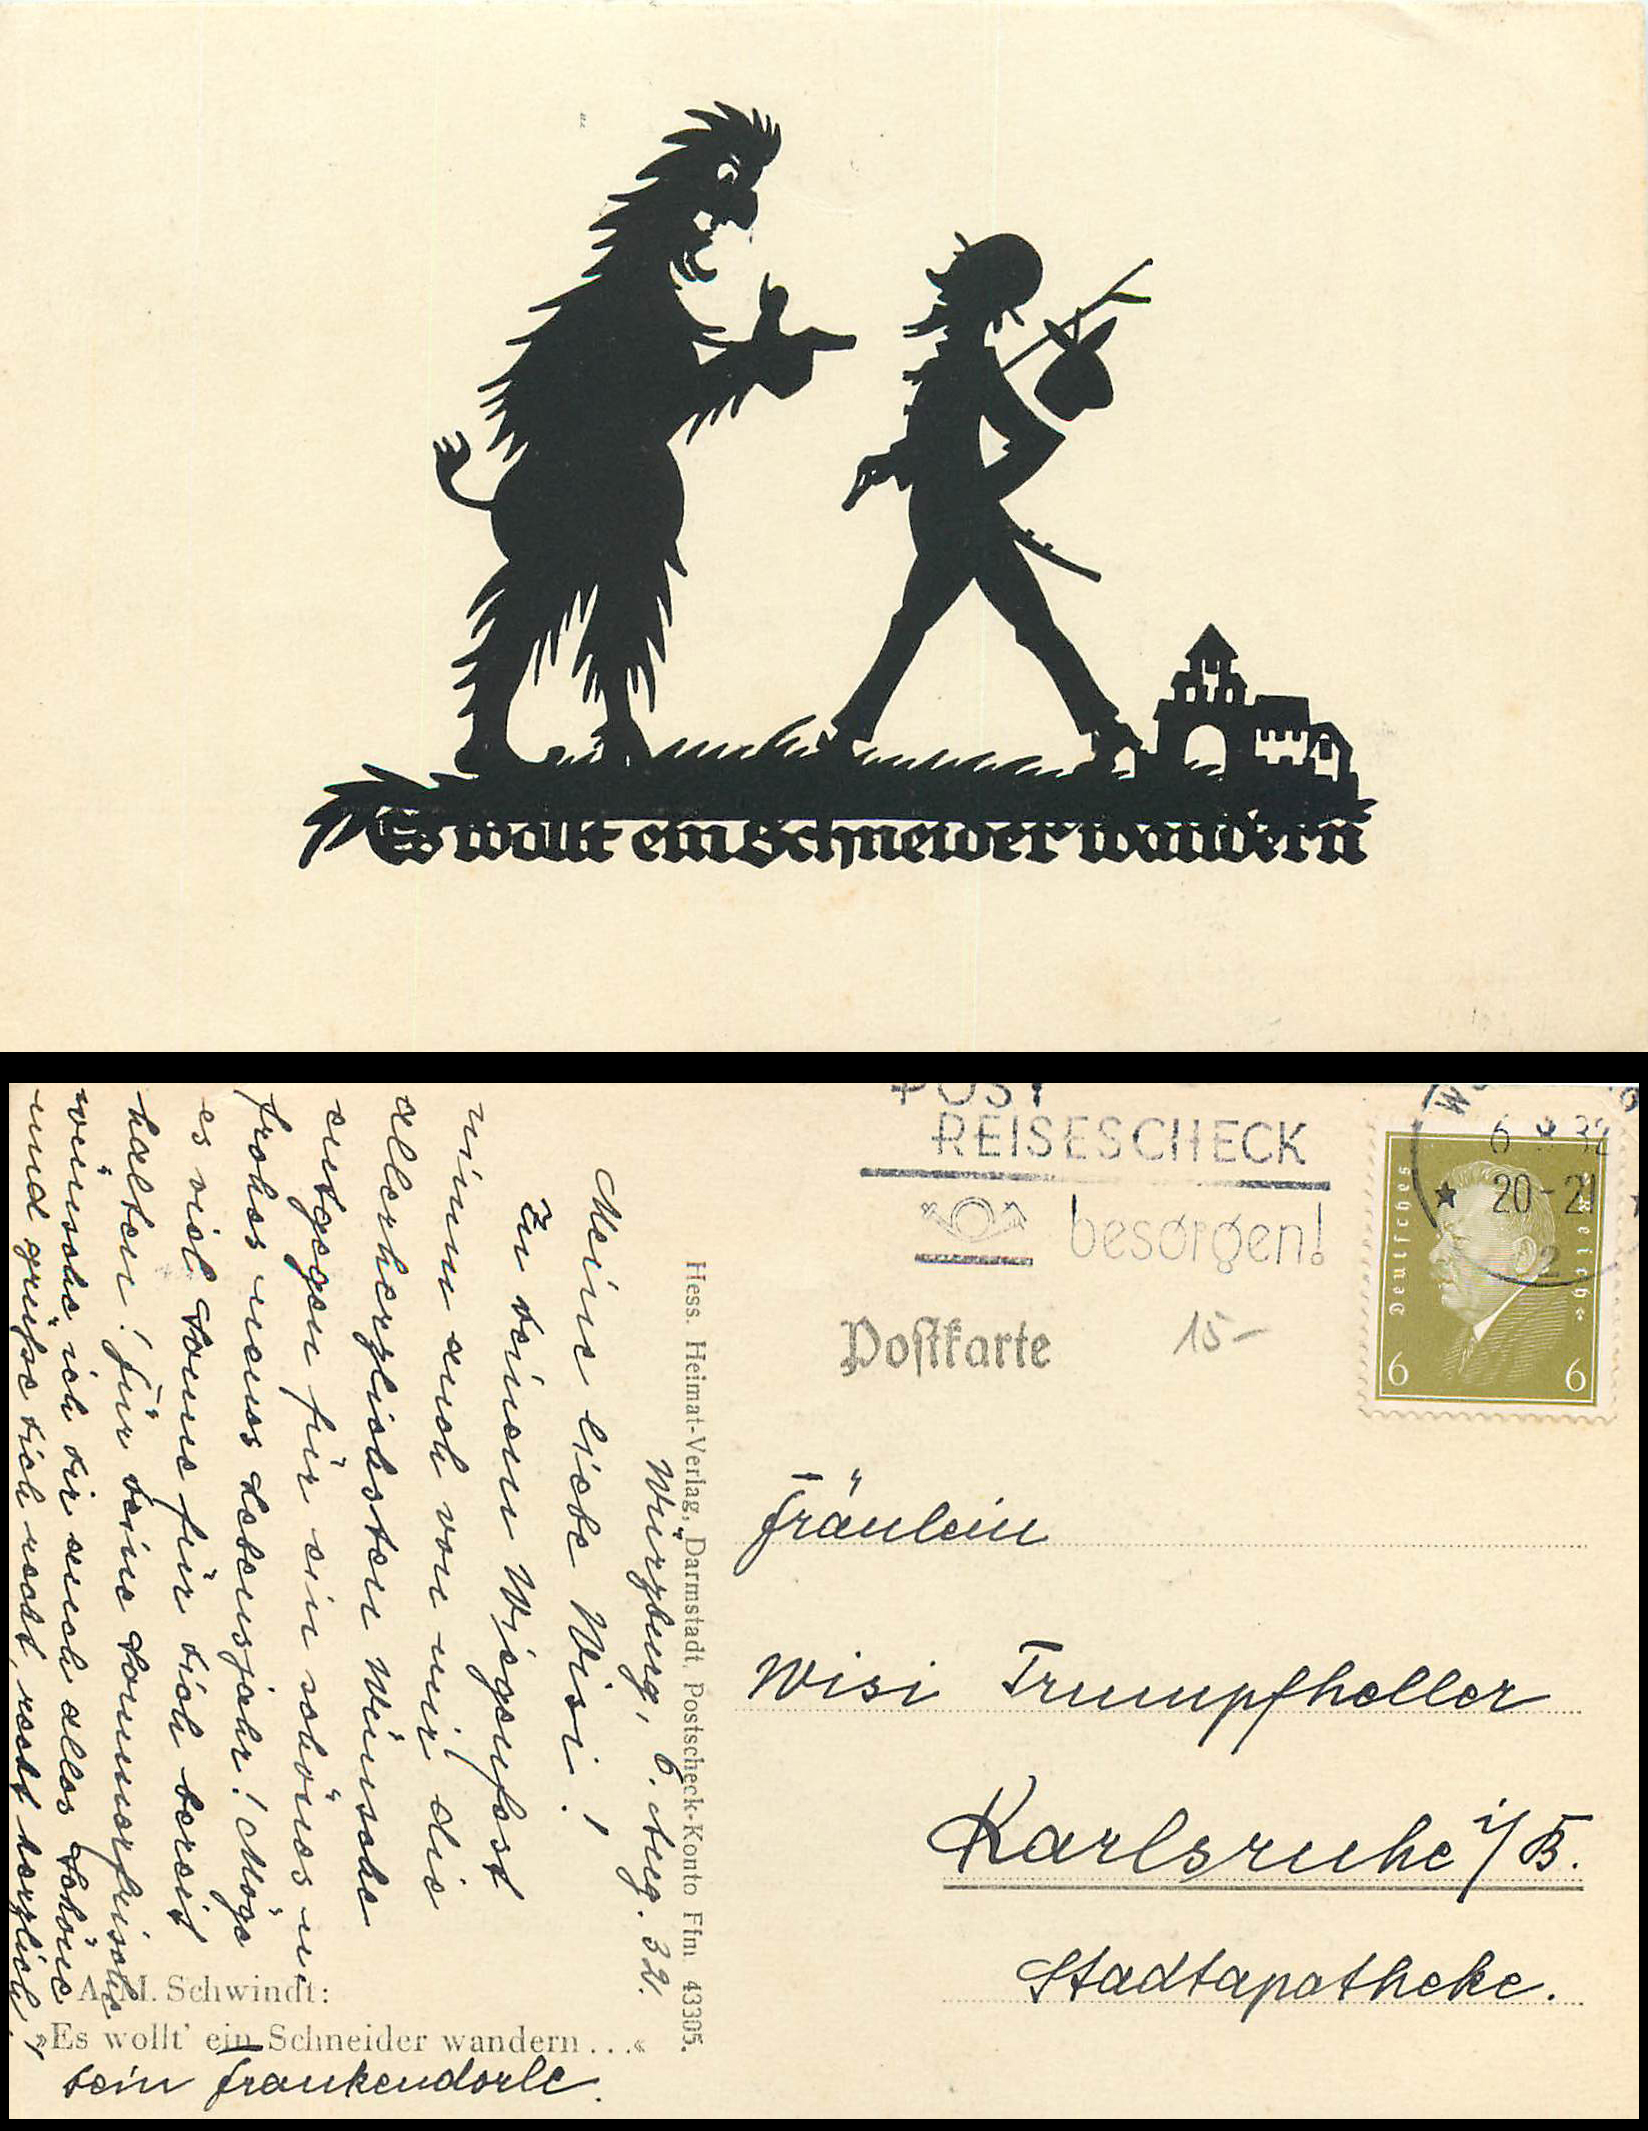 Es wollt ein Schneider wandern
POST
REISESCHECK
besorgen!
6 8 32
20-21
2
Deutsches Reich
6 6
Postkarte
15-
Fräulein
Wisi Trumpfheller
Karlsruhe i/B.
Stadtapotheke.
Hess. Heimat-Verlag, Darmstadt, Postscheck-Konto Ffm. 43305.
Würzburg, 6. Aug. 32.
Meine liebe Wisi!
Zu deinem Wiegenfest
nimm auch von mir die
allerherzlichsten Wünsche
entgegen für ein schönes u
frohes neues Lebensjahr! Möge
es viel Sonne für dich bereit
halten! Für deine Sommerfrische
wünsche ich dir auch alles Schöne
und grüße dich recht, recht herzlich!
A. M. Schwindt:
»Es wollt' ein Schneider wandern...«
dein Frankendorle.